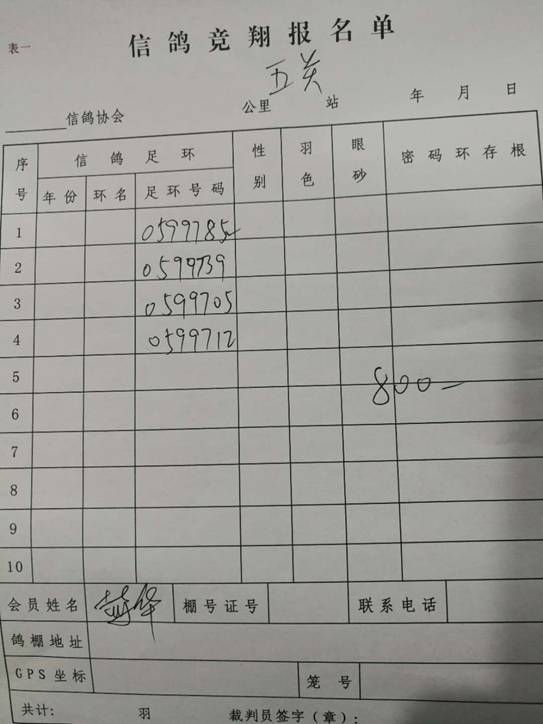 表一
信鸽竞翔报名单
五关
信鸽协会 公里 站 年 月 日
序号 信鸽足环 性别 羽色 眼砂 密码环存根
年份 环名 足环号码
1 0599785
2 0599739
3 0599705
4 0599712
5
800-
6
7
8
9
10
会员姓名 华 棚号证号 联系电话
鸽棚地址
GPS坐标 笼号
共计: 羽 裁判员签字(章):